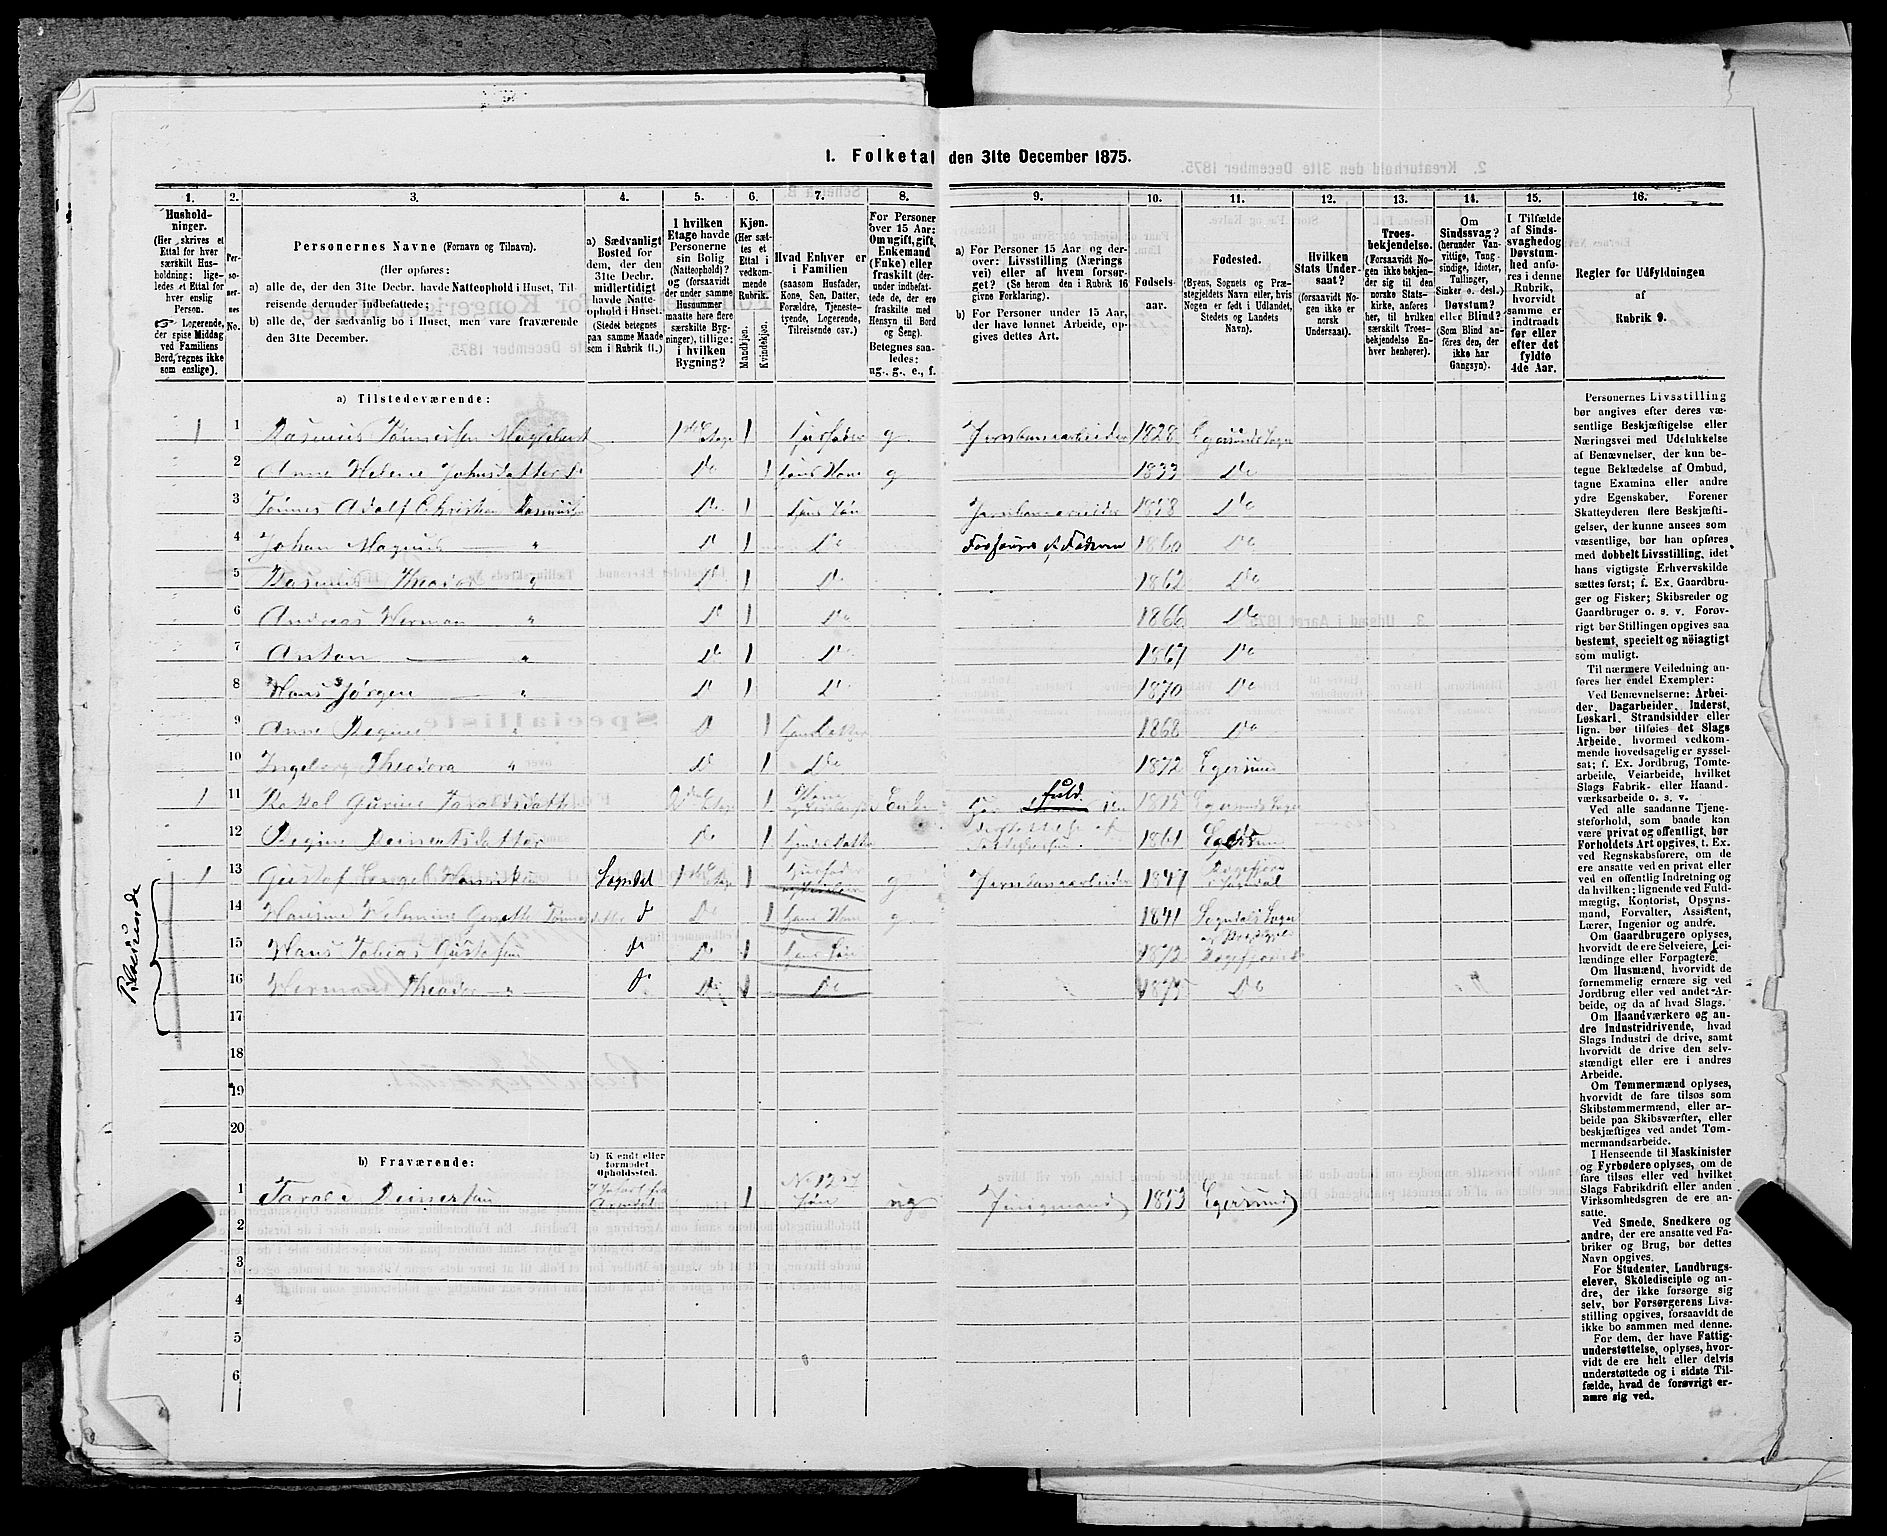 1. Folketal den 31te December 1875.
1. 2. 3. 4. 5. 6. 7. 8. 9. 10. 11. 12. 13. 14. 15. 16.
Hushold-
ninger.
(Her skrives et
Ettal for hver
særskilt Hus-
holdning; lige-
ledes et Ettal for
hver enslig
Person.
Logerende,
der spise Middag
ved Familiens
Bord, regnes ikke
som enslige).
Per-
so-
ner-
nes
No.
Personernes Navne (Fornavn og Tilnavn).
(Her opføres:
a) alle de, der den 31te Decbr. havde Natteophold i Huset, Til-
reisende derunder indbefattede;
b) alle de, der sædvanlig bo i Huset, men vare fraværende
den 31te December.
a) Sædvanligt
Bosted for
dem, der den
31te Decbr.
midlertidigt
havde Natte-
ophold i Huset.
(Stedet betegnes
paa samme Maade
som i Rubrik 11.)
I hvilken
Etage havde
Personerne
sin Bolig
(Natteophold)?
og (forsaavidt
der under samme
Husnummer
maatte høre flere
særskilte Byg-
ninger), tillige:
i hvilken
Bygning?
Kjøn.
(Her sæt-
tes et
Ettal i
vedkom-
mende
Rubrik.)
Mandkjøn.
Kvindekjøn.
Hvad Enhver er
i Familien
(saasom Husfader,
Kone, Søn, Datter,
Forældre, Tjeneste-
tyende, Logerende,
Tilreisende osv.)
For Personer
over 15 Aar:
Om ugift, gift,
Enkemand
(Enke) eller
fraskilt (der-
under indbefat-
tede de, der ere
fraskilte med
Hensyn til Bord
og Seng).
Betegnes saa-
ledes:
ug., g., e., f.
a) For Personer 15 Aar og der-
over: Livsstilling (Nærings
vei) eller af hvem forsør-
get? (Se herom den i Rubrik 16
givne Forklaring).
b) For Personer under 15 Aar,
der have lønnet Arbeide, op-
gives dettes Art.
Fødsels-
aar.
Fødested.
(Byens, Sognets og Præ-
stegjeldets Navn eller, hvis
Nogen er født i Udlandet,
Stedets og Landets
Navn).
Hvilken
Stats Under-
saat?
(forsaavidt No-
gen ikke er
norsk
Undersaat).
Troes-
bekjendelse.
(Forsaavidt No-
gen ikke bekjen-
der sig til den
norske Stats-
kirke, anføres
her, til hvilken
særskilt Troes-
bekjendelse En-
hver henhører).
Om
Sindssvag?
(herunder Van-
vittige, Tung
sindige, Idioter,
Tullinger,
Sinker o. desl.)
Døvstum?
eller Blind?
(Som Blind an-
føres den, der
ikke har
Gangsyn).
I Tilfælde
af Sinds-
svaghed og
Døvstum-
hed anfø-
res i denne
Rubrik,
hvorvidt
samme er
indtraadt
før eller
efter det
fyldte
4de Aar.
Regler for Udfyldningen
af
Rubrik 9.
a) Tilstedeværende:
1 1 Rasmus Tønnesen 1ste Etage 1 Husfader g Jernbanearbeider 1828 Egersunds Sogn
2 Anne Helene Johnsdatter Do 1 Hans Kone g 1833 Do
3 Tønnes Adolf Christian Do 1 Hans Søn Jernbanearbeider 1858 Do
4 Johan Magnus — " Do 1 Do Forsørges af Faderen 1860 Do
5 Rasmus Theodor " Do 1 Do 1862 Do
6 Andreas Herman " Do 1 Do 1866 Do
7 Anton — " Do 1 Do 1867 Do
8 Hans Jørgen — " Do 1 Do 1870 Do
9 Anne Regine " Do 1 Hans Datter 1868 Do
10 Ingeborg Theodora " Do 1 Do 1872 Egersund
1 11 Gurine Taraldsdatter Etage 1 Enke fuld 1815 Egersunds Sogn
12 Regine Do 1 Hans Datter 1861 Egersund
1 13 Gustaf Sogndal 1ste Etage Husfader g Jernbanearbeider 1847
14 Do 1 Hans Kone g 1841 Sogndals Sogn
15 Hans Tobias Gustafsen Do Do 1 Hans Søn 1872
16 Hermans Theodor — " Do Do 1 Do 1875 Do
17
18
19
20
b) Fraværende:
b) Kjendt eller
formodet
Opholdssted.
1 Tarald 1 Søn ug Jungmand 1853 Egersund
2
3
4
5
6
Personernes Livsstilling
bør angives efter deres væ-
sentlige Beskjæftigelse eller
Næringsvei med Udelukkelse
af Benævnelser, der kun be-
tegne Beklædelse af Ombud,
tagne Examina eller andre
ydre Egenskaber. Forener
Skatteyderen flere Beskjæfti-
gelser, der kunne ansees som
væsentlige, bør han opføres
med dobbelt Livsstilling, idet
hans vigtigste Erhvervskilde
sættes først; f. Ex. Gaardbru-
ger og Fisker; Skibsreder og
Gaardbruger o. s. v. Forøv-
rigt bør Stillingen opgives saa
bestemt, specielt og nöiagtigt
som muligt.
Til nærmere Veiledning an-
føres her endel Exempler:
Ved Benævnelserne: Arbei-
der, Dagarbeider, Inderst,
Løskarl, Strandsidder eller
lign. bør tilføies det Slags
Arbeide, hvormed vedkom-
mende hovedsagelig er syssel-
sat; f. Ex. Jordbrug, Tomte-
arbeide, Veiarbeide, hvilket
Slags Fabrik- eller Haand-
værksarbeide o. s. v.
Ved alle saadanne Tjene-
steforhold, som baade kan
være privat og offentligt, bør
Forholdets Art opgives, t. Ex.
ved Regnskabsførere, om de
ere ansatte ved en privat eller
ved en offentlig Indretning og
da hvilken; lignende ved Fuld-
mægtig, Kontorist, Opsyns-
mand, Forvalter, Assistent,
Lærer, Ingeniør og andre.
Om Gaardbrugere oplyses,
hvorvidt de ere Selveiere, Lei-
lændinge eller Forpagtere.
Om Husmænd, hvorvidt de
fornemmelig ernære sig ved
Jordbrug eller ved andet Ar-
beide, og da af hvad Slags.
Om Haandværkere og an-
dre Industridrivende, hvad
Slags Industri de drive, samt
hvorvidt de drive den selv-
stændigt eller ere i andres
Arbeide.
Om Tømmermænd oplyses,
hvorvidt de fare tilsøs som
Skibstømmermænd, eller ar-
beide paa Skibsværfter, eller
beskjæftiges ved andet Tøm-
mermandsarbeide.
I Henseende til Maskinister
og Fyrbødere oplyses, om de
fare tilsøs eller ved hvilket
Slags Fabrikdrift eller anden
Virksomhedsgren de ere an-
satte.
Ved Smede, Snedkere og
andre, der ere ansatte ved Fa-
briker og Brug, bør dettes
Navn opgives.
For Studenter, Landbrugs-
elever, Skoledisciple og an-
dre, der ikke forsørge sig
selv, bør Forsørgerens Livs-
stilling opgives, forsaavidt de
ikke bo sammen med denne.
For dem, der have Fattig-
understøttelse, oplyses, hvor-
vidt de ere helt eller delvis
understøttede og i sidste Til-
fælde, hvad de forøvrigt er-
nære sig ved.